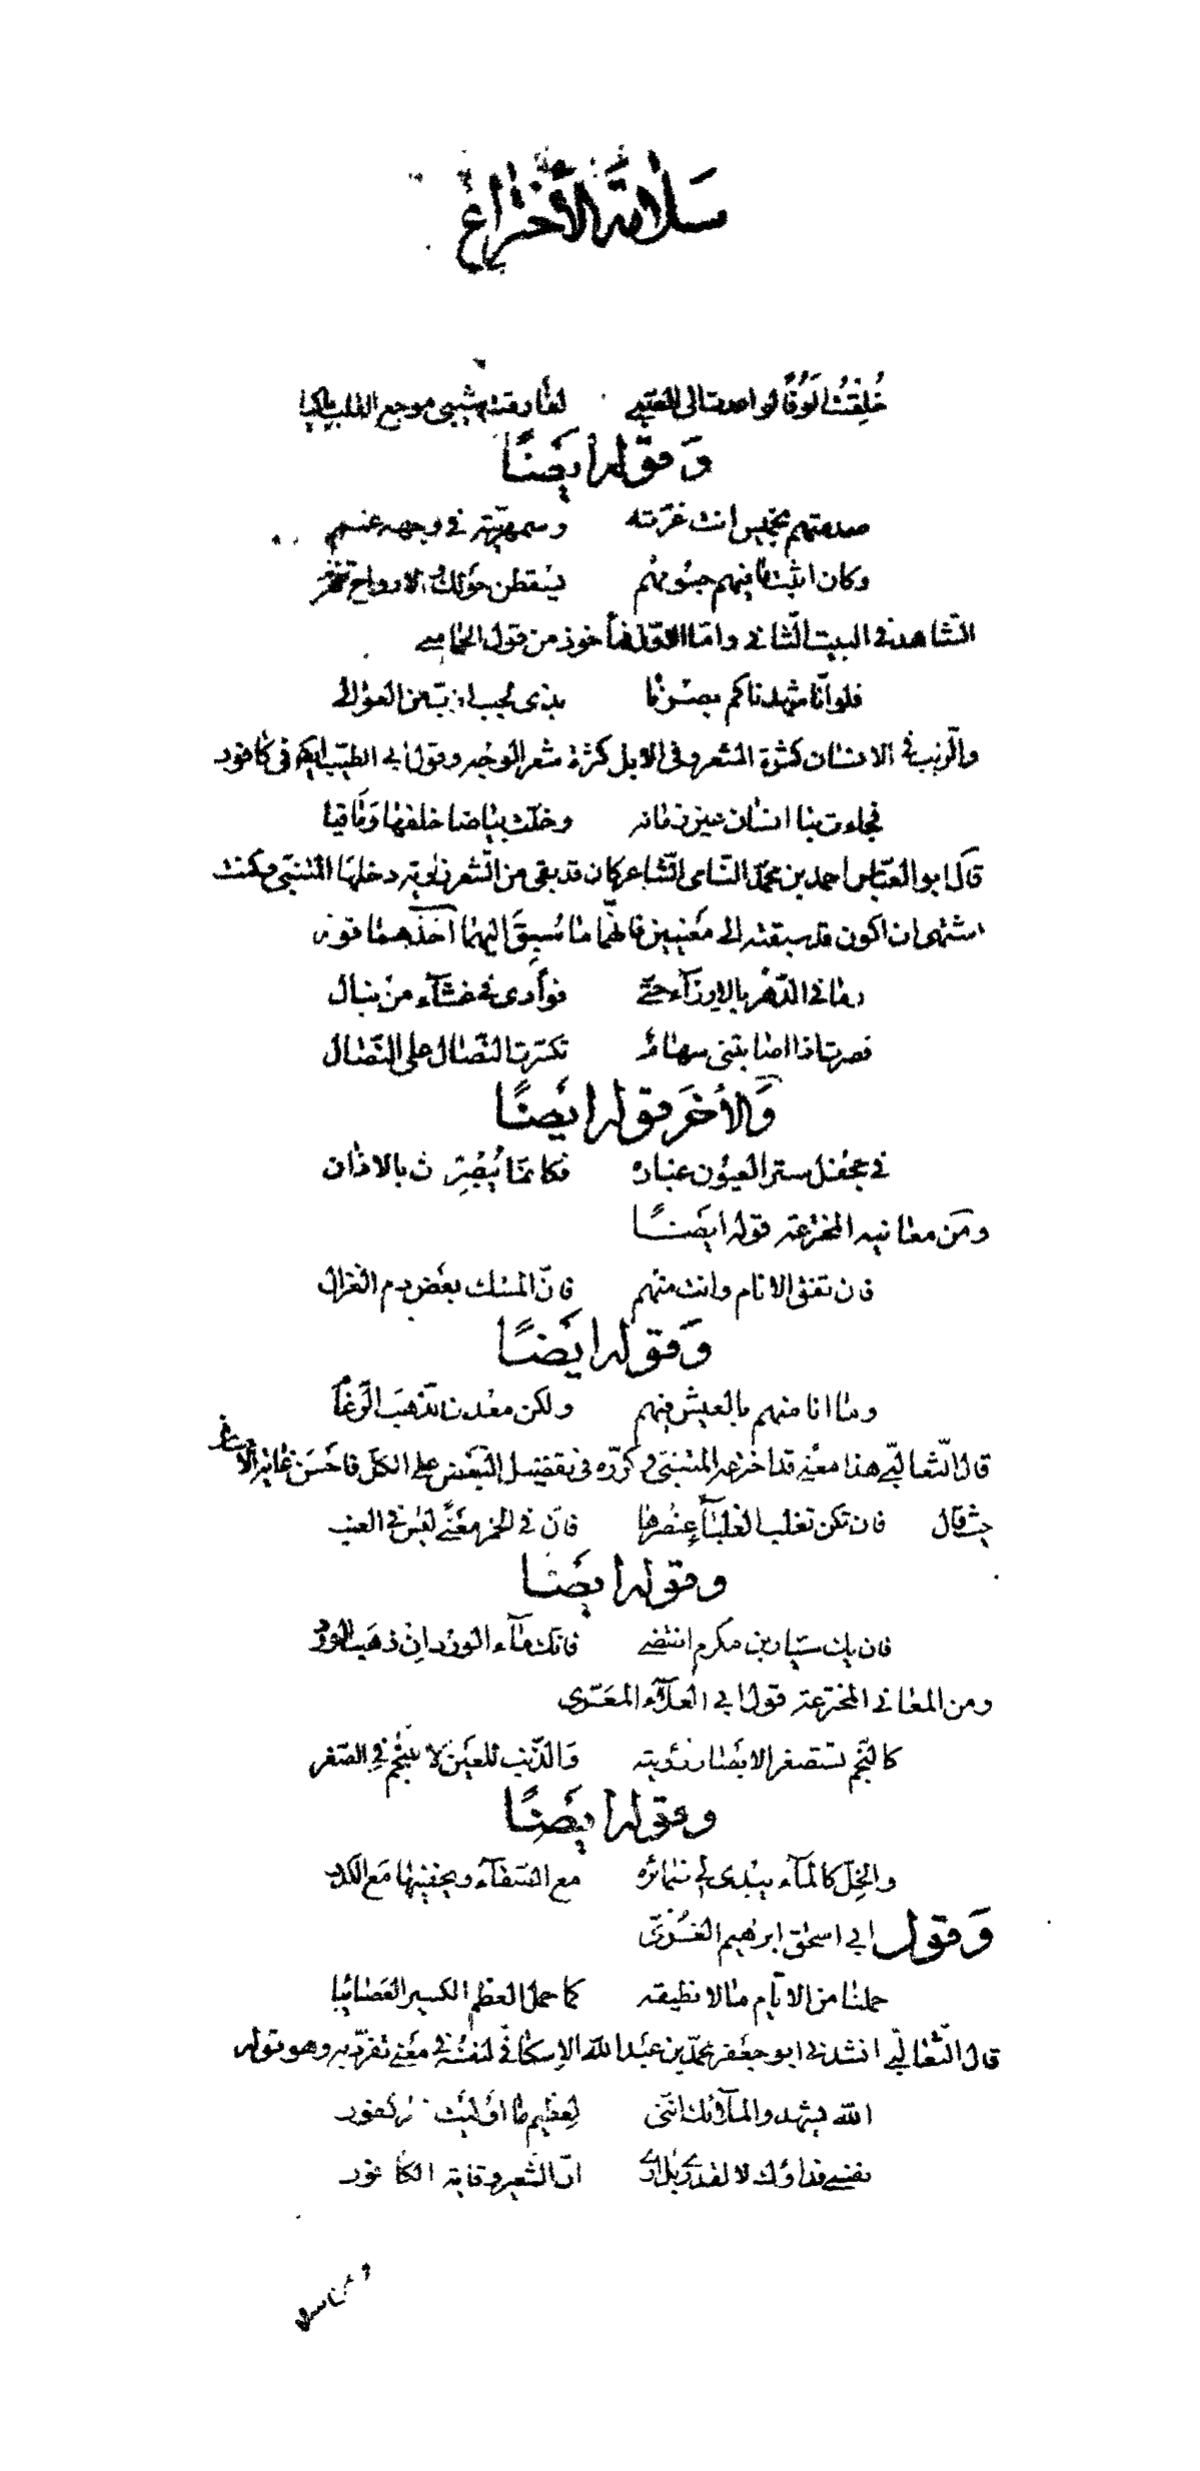 سلامة الأختراع
خُلِقْتُ اَلُوفًا لو اعدتَ الى الصبى لفارقت شيبى موجع القلب باكيا
وَقوله ايضًا
صدمتهم بخميس انت غرّته وسمهريّته فى وجهه غمم
وكان اثبت ما فيهم جسومهم يسقطن حولك والارواح تنهزم
الشاهد فى البيت الثانى وامّا الاوّل فمأخوذ من قول الحماسى
فلو انّا شهدناكم نصرنا بذى لجب ازبّ من العوالى
والزبب فى الانسان كثرة الشعر وفى الابل كثرة شعر الوجه وقول ابى الطيّب ايضا فى كافور
فجاءت بنا انسان عين زمانه وخلّت بياضا خلفها ومَآقيا
قال ابو العبّاس احمد بن محمّد النّامى الشّاعر كان قد بقى من الشّعر زاوية دخلها المتنبّى وكنت
اشتهى ان اكون قد سبقته الى معنيين قالهما ما سُبِقَ اليهما اَحَدُهما قوله
رمانى الدّهر بالارزآء حتّى فوأدى فى غشآء من نبال
فصرت اذا اصابتنى سهام تكسّرت النّصال على النّصال
وَالأخَر قوله ايضًا
فى جحفل ستر العيون غباره فكانّما يُبْصِرْن بالاذان
ومن معانيه المخترعة قوله ايضًا
فان تفق الانام وانت منهم فانّ المسك بعض دم الغزال
وَقوله ايضًا
وما انا منهم بالعيش فيهم ولكن معدن الذّهب الرّغام
قال الثّعالبى هذا معنى قد اخترعه المتنبّى وكرّره فى تفضيل البَعْض على الكلّ فاَحْسَنَ غاية الأحسان
حيث قال فان تكن تغلب الغلبآء عنصرها فانّ فى الخمر معنًى ليس فى العنب
وقوله ايضًا
فان يك سيّار بن مكرم انقضى فانّك مآء الورد اِن ذهب الورد
ومن المعانى المخترعة قول ابى العلآء المعرّى
كالنّجم تستصغر الابصار رؤيته وَالذّنب للعين لا للنجم فى الصّغر
وقوله ايضًا
والخلّ كالمآء يبدى لى ضمائره مع الصّفآء ويخفيها مع الكدر
وَقول ابى اسحٰق ابرٰهيم الغزّىّ
حملنا من الايّام ما لا نطيقه كما حمل العظم الكسير العصائبا
قال الثّعالبىّ انشدنى ابو جعفر محمّد بن عبد الله الاسكافى لنفسه فى معنى تفرّد به وهو قوله
الله يشهد والملآئك انّنى لعظيم ما اوليت كفور
نفسى فداؤك لا لقدرى بل ارى انّ الشّعير وقاية الكافور